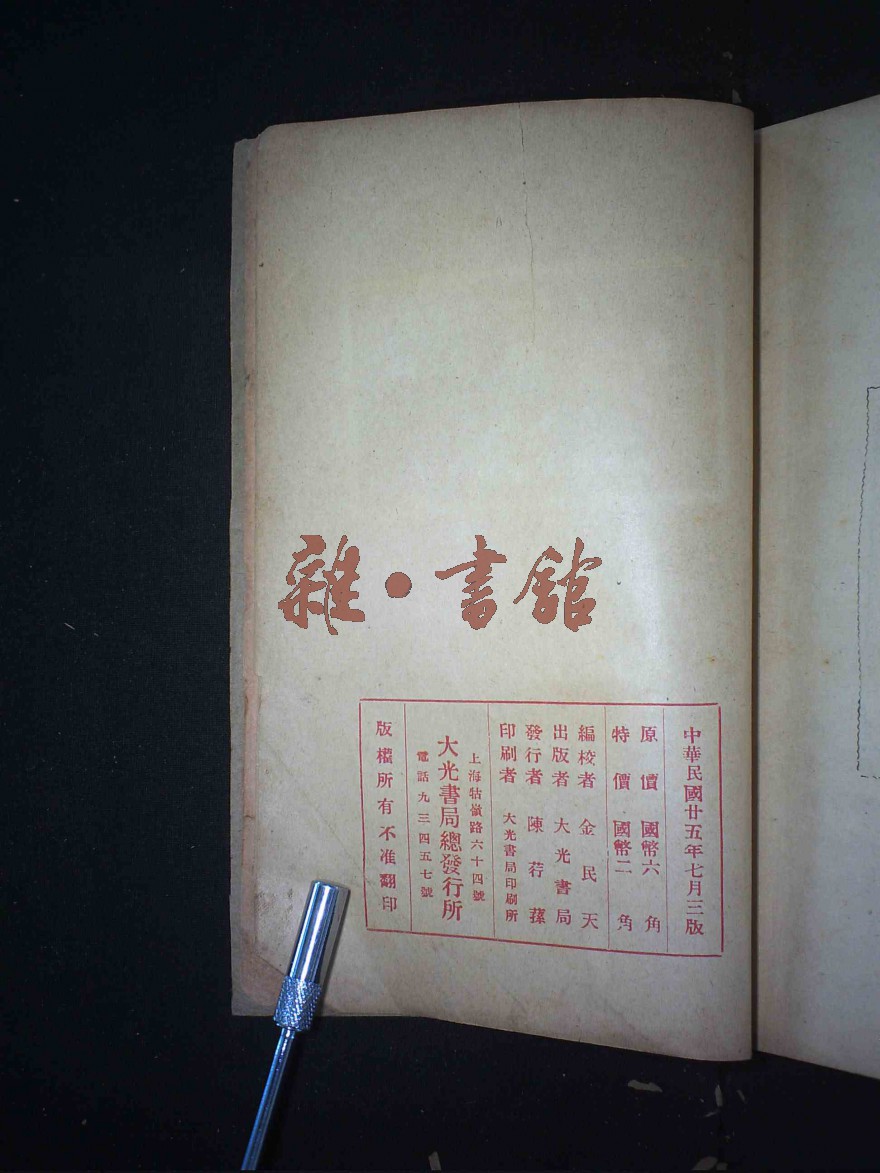 雜·書館
中華民國廿五年七月三版
原價 國幣六角
特價 國幣二角
編校者 金民天
出版者 大光書局
發行者 陳荇蓀
印刷者 大光書局印刷所
上海牯嶺路六十四號
大光書局總發行所
電話九三四五七號
版權所有不准翻印